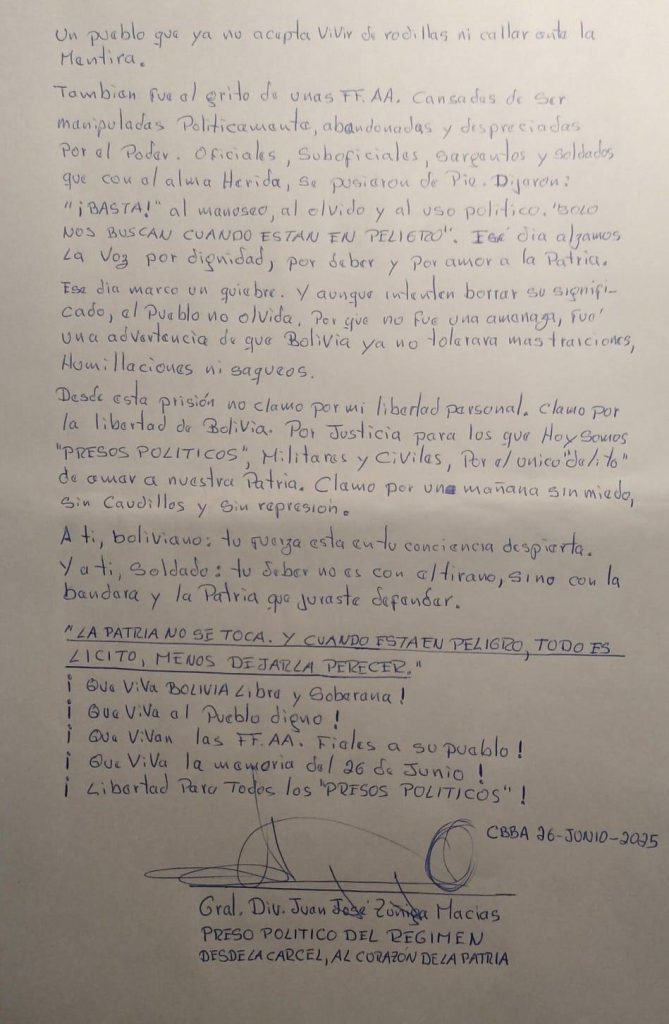 Un pueblo que ya no acepta ViVir de rodillas ni callar ante la
Mentira.
Tambien fue el grito de unas FF.AA. Cansadas de ser
manipuladas Politicamente, abandonadas y despreciadas
Por el Poder. Oficiales, Suboficiales, sargentos y soldados
que con el alma Herida, se pusieron de Pie. Dijeron:
"¡BASTA!" al manoseo, al olvido y al uso politico. "SOLO
NOS BUSCAN CUANDO ESTAN EN PELIGRO". Ese dia alzamos
la Voz por dignidad, por deber y por amor a la Patria.
Ese dia marco un quiebre. Y aunque intenten borrar su signifi-
cado, el Pueblo no olvida. Por que no fue una amenaza, fué
una advertencia de que Bolivia ya no tolerara mas traiciones,
Humillaciones ni saqueos.
Desde esta prisión no clamo por mi libertad personal. Clamo por
la libertad de Bolivia. Por Justicia para los que Hoy somos
"PRESOS POLITICOS", Militares y Civiles, Por el unico "delito"
de amar a nuestra Patria. Clamo por una mañana sin miedo,
sin Caudillos y sin represion.
A ti, boliviano: tu fuerza esta en tu conciencia despierta.
Y a ti, Soldado: tu deber no es con el tirano, sino con la
bandera y la Patria que juraste defender.
"LA PATRIA NO SE TOCA. Y CUANDO ESTA EN PELIGRO, TODO ES
LICITO, MENOS DEJARLA PERECER."
¡ Que ViVa BOLIVIA Libre y Soberana !
¡ Que ViVa el Pueblo digno !
¡ Que ViVan las FF.AA. Fieles a su pueblo !
¡ Que ViVa la memoria del 26 de Junio !
¡ Libertad Para Todos los "PRESOS POLITICOS" !
CBBA 26-JUNIO-2025
Gral. Div. Juan José Zúñiga Macias
PRESO POLITICO DEL REGIMEN
DESDE LA CARCEL, AL CORAZÓN DE LA PATRIA